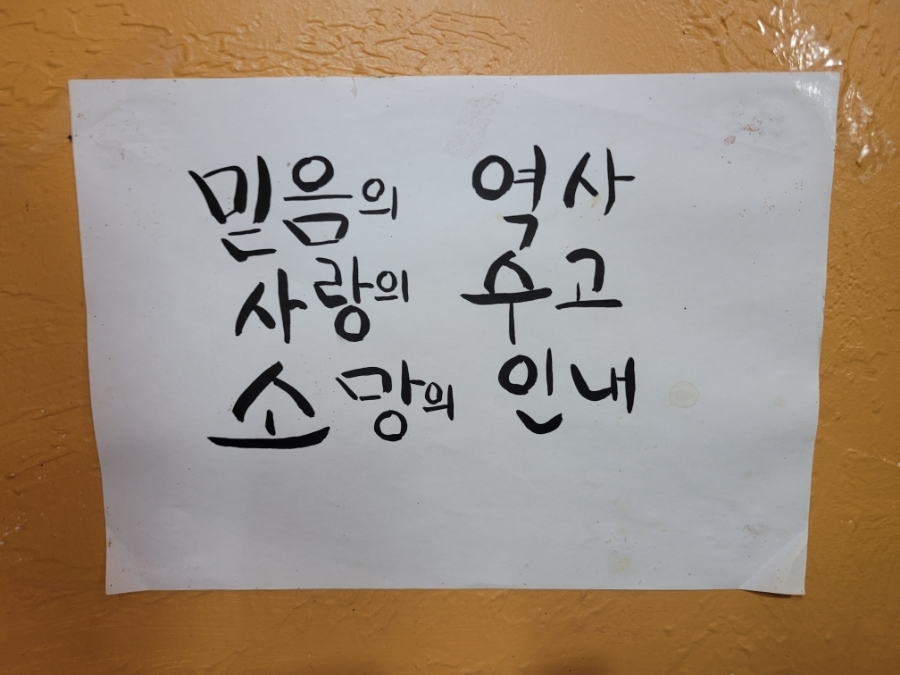 믿음의 역사
사랑의 수고
소망의 인내